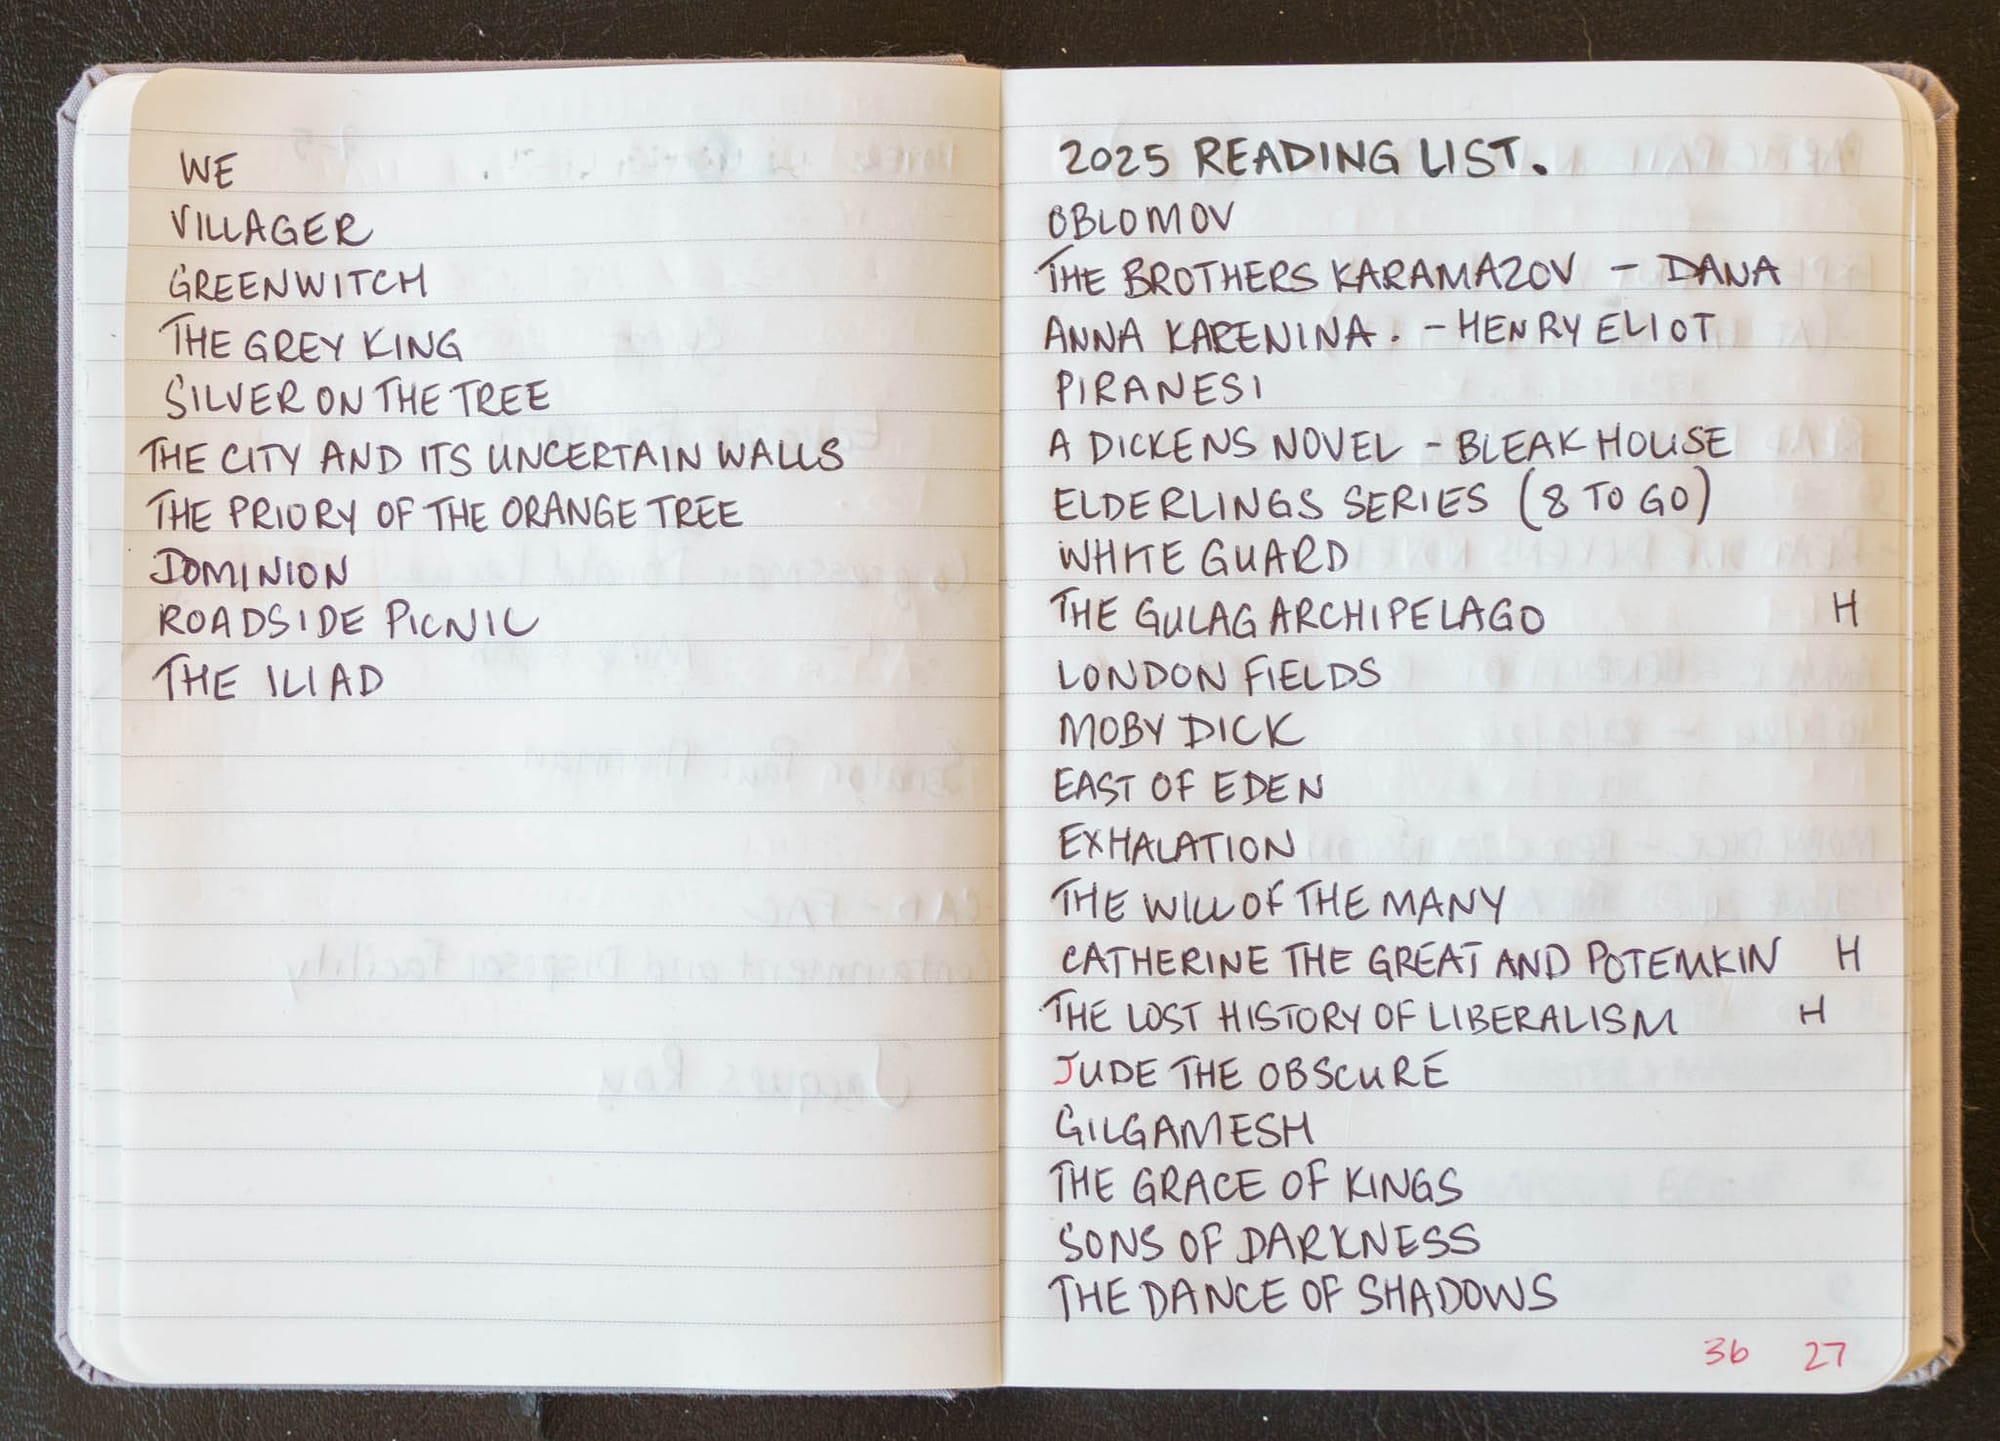 WE
VILLAGER
GREENWITCH
THE GREY KING
SILVER ON THE TREE
THE CITY AND ITS UNCERTAIN WALLS
THE PRIORY OF THE ORANGE TREE
DOMINION
ROADSIDE PICNIC
THE ILIAD
2025 READING LIST.
OBLOMOV
THE BROTHERS KARAMAZOV - DANA
ANNA KARENINA. - HENRY ELIOT
PIRANESI
A DICKENS NOVEL - BLEAK HOUSE
ELDERLINGS SERIES (8 TO GO)
WHITE GUARD
THE GULAG ARCHIPELAGO H
LONDON FIELDS
MOBY DICK
EAST OF EDEN
EXHALATION
THE WILL OF THE MANY
CATHERINE THE GREAT AND POTEMKIN H
THE LOST HISTORY OF LIBERALISM H
JUDE THE OBSCURE
GILGAMESH
THE GRACE OF KINGS
SONS OF DARKNESS
THE DANCE OF SHADOWS
36 27